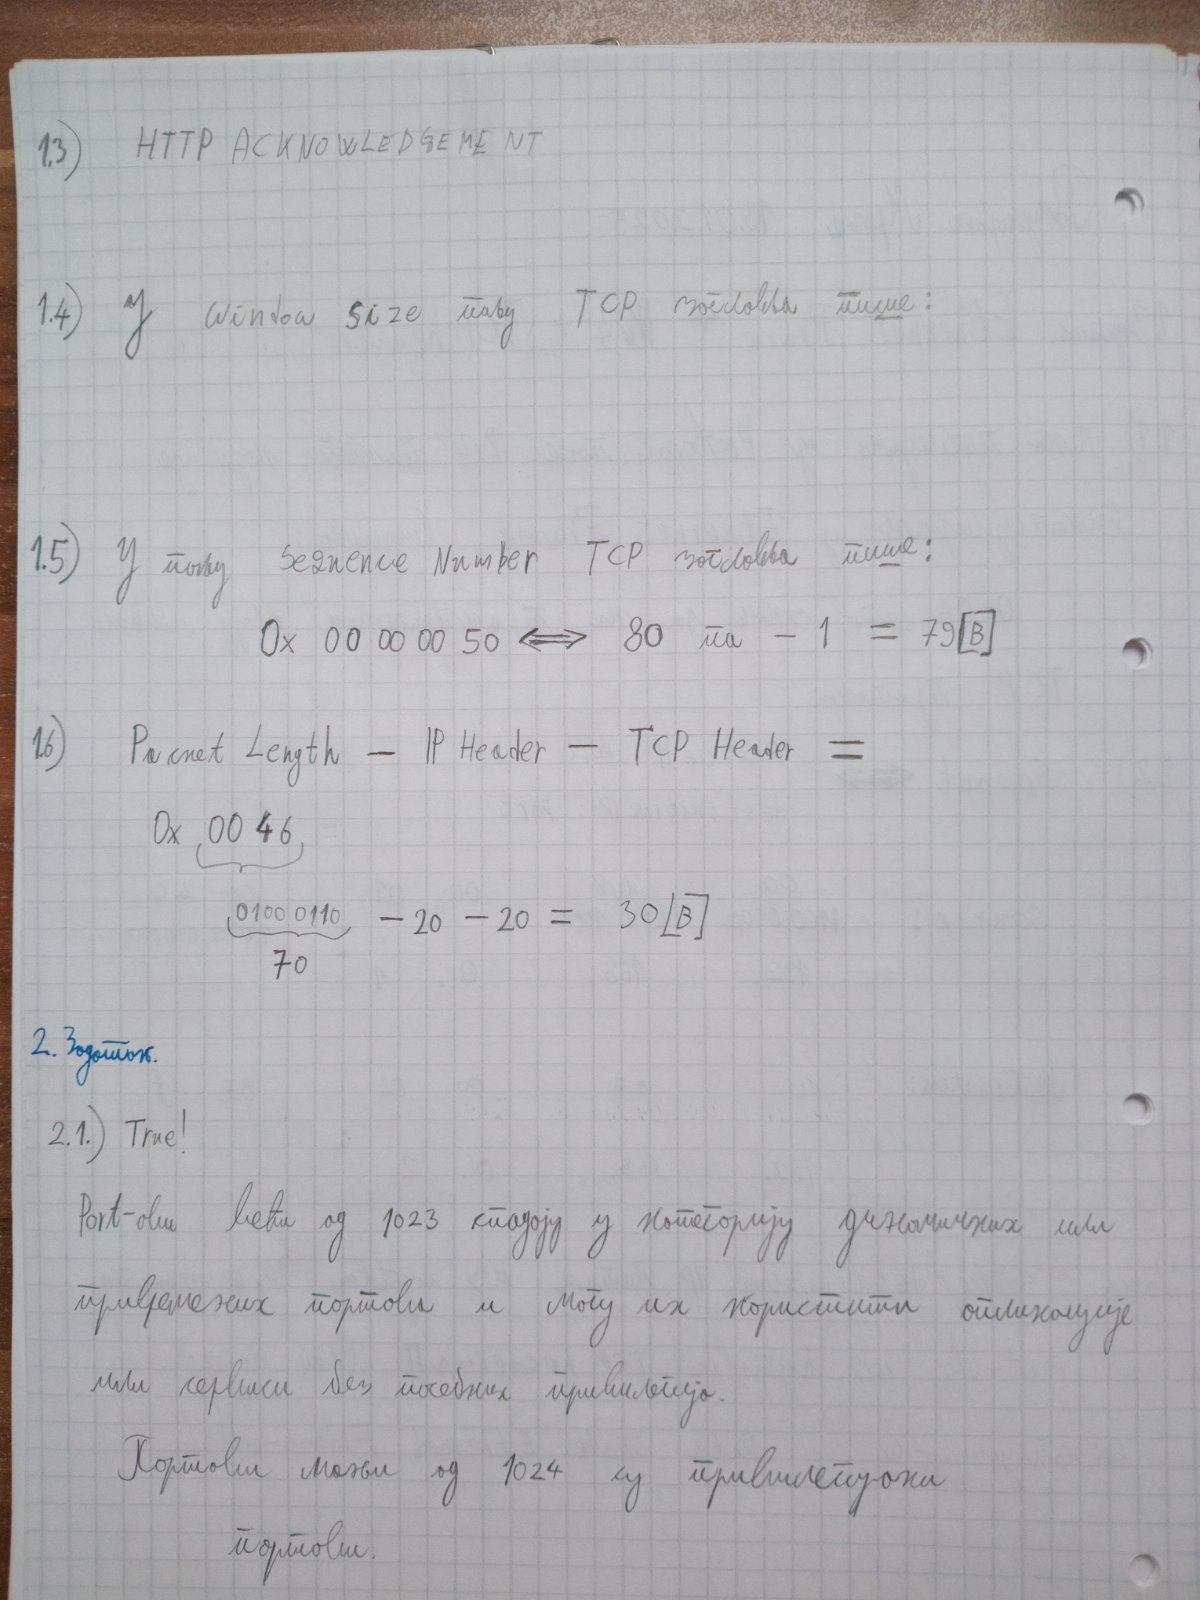 1.3) HTTP ACKNOWLEDGEMENT
1.4) У Window Size пољу TCP заглавља пише:
1.5) У пољу Sequence Number TCP заглавља пише:
0x 00 00 00 50 ⟺ 80 па - 1 = 79[B]
1.6) Packet Length - IP Header - TCP Header =
0x 0046
0100 0110 - 20 - 20 = 30[B]
70
2. Задатак.
2.1.) True!
Port-ови већи од 1023 спадају у категорију динамичких или
привремених портова и могу их користити апликације
или сервиси без посебних привилегија.
Портови мањи од 1024 су привилеговани
портови.